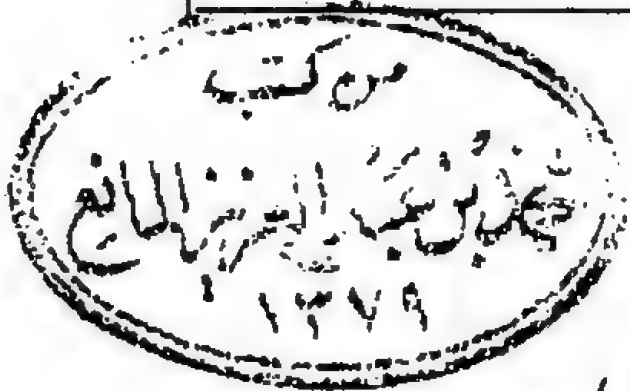 من كتب
محمد بن عبد العزيز المانع
١٣٧٩